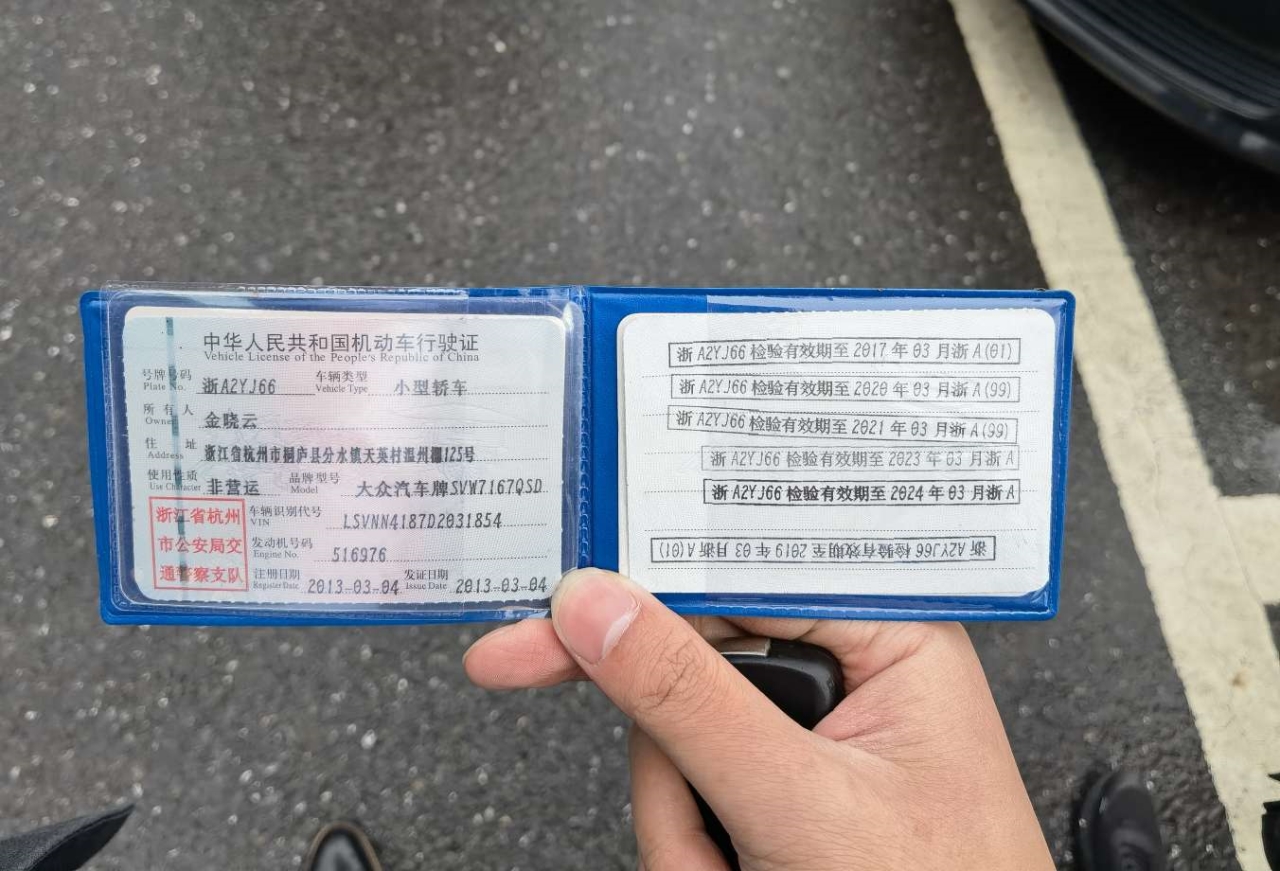 中华人民共和国机动车行驶证
Vehicle License of the People's Republic of China
号牌号码 浙A2YJ66 车辆类型 小型轿车
Plate No. Vehicle Type
所有人 金晓云
Owner
住址 浙江省杭州市桐庐县分水镇天英村温州棚125号
Address
使用性质 非营运 品牌型号 大众汽车牌SVW7167QSD
Use Character Model
浙江省杭州
市公安局交
通警察支队
车辆识别代号 LSVNN4187D2031854
VIN
发动机号码 516976
Engine No.
注册日期 2013-03-04 发证日期 2013-03-04
Register Date Issue Date
浙A2YJ66检验有效期至2017年03月浙A(01)
浙A2YJ66检验有效期至2020年03月浙A(99)
浙A2YJ66检验有效期至2021年03月浙A(99)
浙A2YJ66检验有效期至2023年03月浙A
浙A2YJ66检验有效期至2024年03月浙A
浙A2YJ66检验有效期至2019年03月浙A(01)